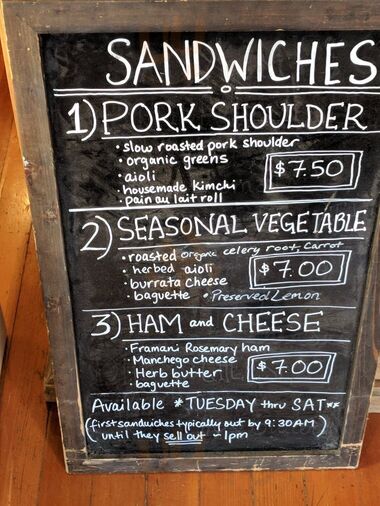 SANDWICHES
1) PORK SHOULDER
• slow roasted pork shoulder
• organic greens
• aioli
• housemade kimchi
• pain au lait roll
$7.50
2) SEASONAL VEGETABLE
• roasted organic celery root, carrot
• herbed aioli
• burrata cheese
• baguette • Preserved Lemon
$7.00
3) HAM and CHEESE
• Framani Rosemary ham
• Manchego cheese
• Herb butter
• baguette
$7.00
Available * TUESDAY thru SAT**
(first sandwiches typically out by 9:30AM)
until they sell out ~1pm